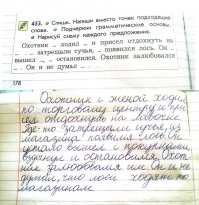 453. Спиши. Напиши вместо точек подходящие
слова. Подчеркни грамматические основы.
Нарисуй схему каждого предложения.
Охотник ... ходил ... и присел отдохнуть на
... . ... затрещали сучья, ... появился лось. Он
вышел ..., ... остановился. Охотник залюбовался
... . Он и не думал ... .
178
Охотник с женой ходил
по торговому центру и при-
сел отдохнуть на лавочке.
Где-то затрещали сучья, из
магазина появился лось. Он
устало вышел с покупками,
и остановился. Охот-
ник залюбовался им. Он и не
думал, что лоси ходят по
магазинам.